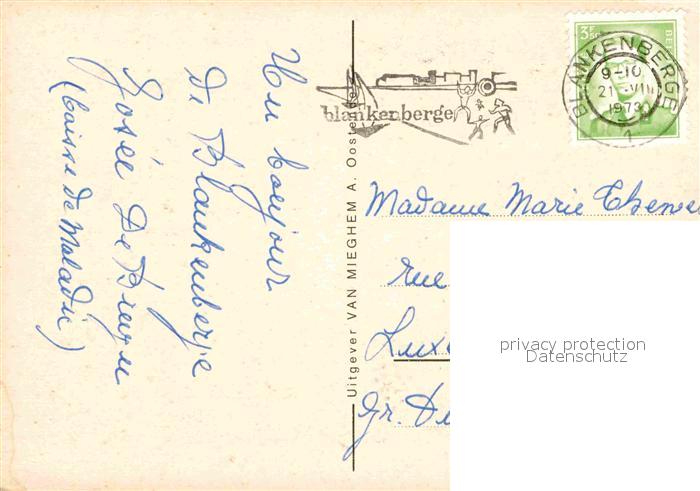 Un bonjour
De Blankenberge
Josée De Bruyn
(Caisse de Maladie)
Uitgever VAN MIEGHEM A. Oostende
blankenberge
3F50
BLANKENBERGE
9-10
21 VIII
1973
1
Madame Marie
rue
Luxe
Gr. Du
privacy protection
Datenschutz